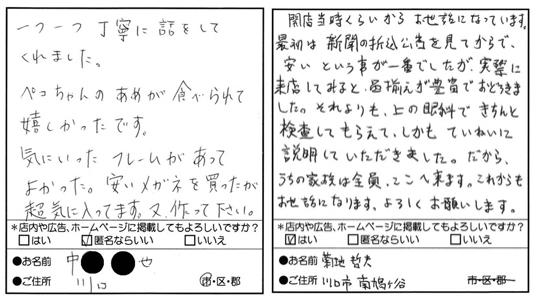 一つ一つ丁寧に話をして
くれました。
ペコちゃんのあめが食べられて
嬉しかったです。
気にいったフレームがあって
よかった。安いメガネを買ったが
超気に入ってます。又、作って下さい。
*店内や広告、ホームページに掲載してもよろしいですか?
□はい ☑匿名ならいい □いいえ
●お名前 中●●也
●ご住所 川口 市・区・郡
開店当時くらいから お世話になっています。
最初は 新聞の折込広告を見てからで、
安いという事が一番でしたが、実際に
来店してみると、品揃えが豊富でおどろきま
した。それよりも、上の眼科で きちんと
検査してもらえて、しかも ていねいに
説明していただきました。だから、
うちの家族は全員、ここへ来ます。これからも
お世話になります、よろしくお願いします。
*店内や広告、ホームページに掲載してもよろしいですか?
☑はい □匿名ならいい □いいえ
●お名前 菊地 哲夫
●ご住所 川口市 南鳩ヶ谷 市・区・郡